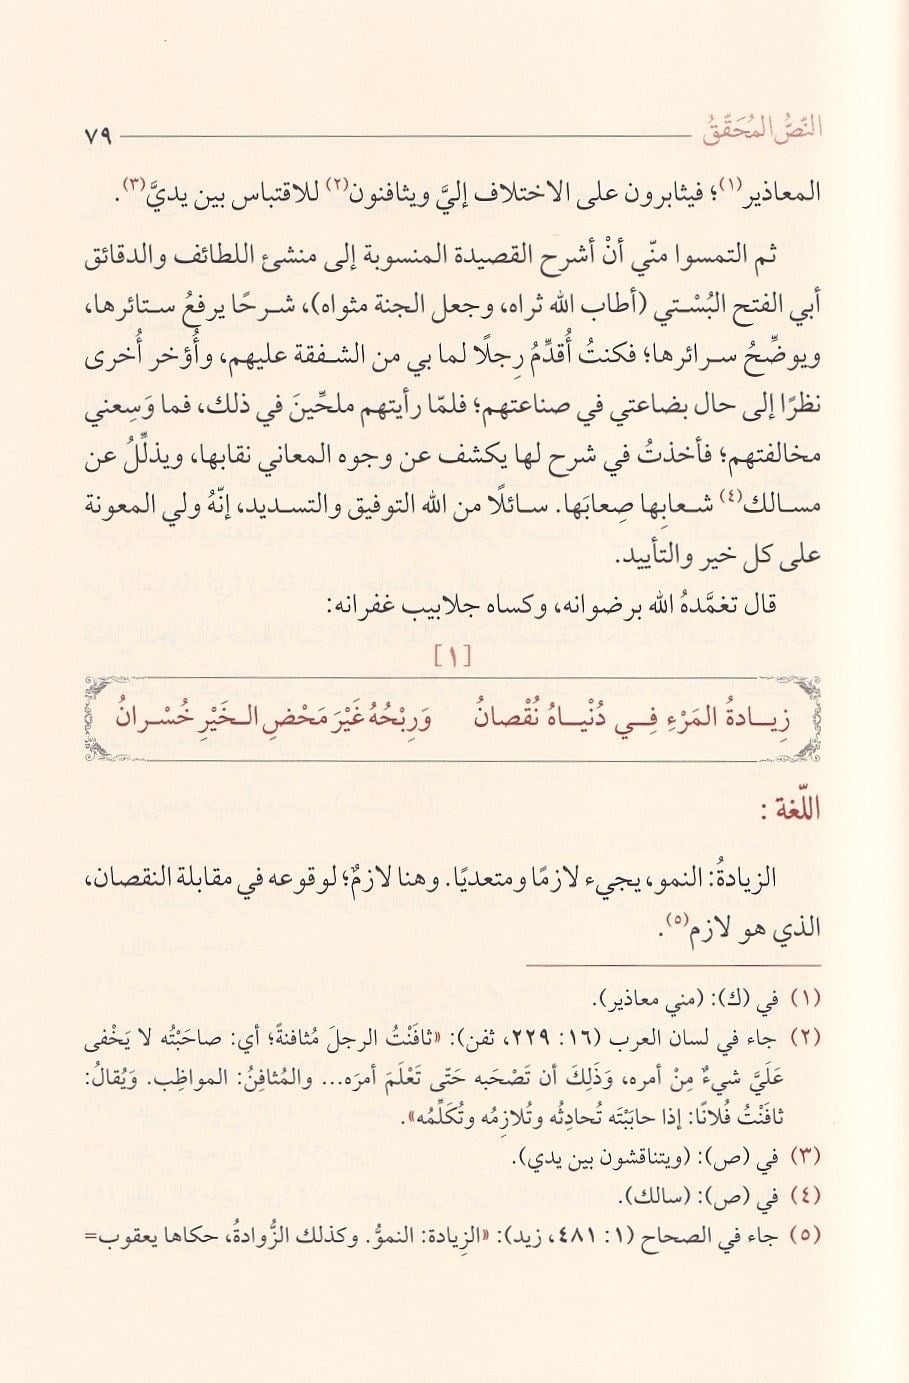 النّصُّ المُحَقّقُ ٧٩
المعاذير(١)؛ فيثابرون على الاختلاف إليَّ ويثافنون(٢) للاقتباس بين يديَّ(٣).
ثم التمسوا منّي أنْ أشرح القصيدة المنسوبة إلى منشئ اللطائف والدقائق
أبي الفتح البُسْتي (أطاب الله ثراه، وجعل الجنة مثواه)، شرحًا يرفعُ ستائرها،
ويوضِّحُ سرائرها؛ فكنتُ أُقدِّمُ رِجلًا لما بي من الشفقة عليهم، وأُؤخر أُخرى
نظرًا إلى حال بضاعتي في صناعتهم؛ فلمّا رأيتهم ملحِّينَ في ذلك، فما وَسِعني
مخالفتهم؛ فأخذتُ في شرح لها يكشف عن وجوه المعاني نقابها، ويذلِّلُ عن
مسالك(٤) شعابِها صِعابَها. سائلًا من الله التوفيق والتسديد، إنّهُ ولي المعونة
على كل خير والتأييد.
قال تغمَّدهُ الله برضوانه، وكساه جلابيب غفرانه:
[١]
زِيادةُ المَرْءِ فِي دُنْياهُ نُقْصانُ وَرِبْحُهُ غَيْرَ مَحْضِ الخَيْرِ خُسْرانُ
اللّغة :
الزيادةُ: النمو، يجيء لازمًا ومتعديًا. وهنا لازمٌ؛ لوقوعه في مقابلة النقصان،
الذي هو لازم(٥).
(١) في (ك): (مني معاذير).
(٢) جاء في لسان العرب (١٦: ٢٢٩، ثفن): «ثافَنْتُ الرجلَ مُثافنةً؛ أي: صاحَبْتُه لا يَخْفى
عَلَيَّ شيءٌ مِنْ أمره، وَذَلِكَ أن تَصْحَبه حَتّى تَعْلَمَ أمرَه... والمُثافِنُ: المواظِب. وَيُقالُ:
ثافَنْتُ فُلانًا: إذا حابَبْتَه تُحادِثُه وتُلازِمُه وتُكَلِّمُه».
(٣) في (ص): (ويتناقشون بين يدي).
(٤) في (ص): (سالك).
(٥) جاء في الصحاح (١: ٤٨١، زيد): «الزِيادة: النموُّ. وكذلك الزُّوادةُ، حكاها يعقوب=